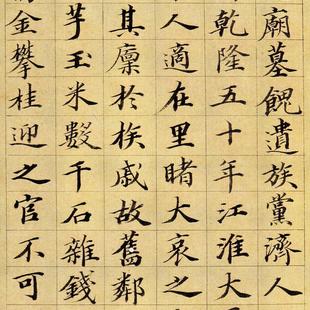 廟墓餽遺族黨濟人
乾隆五十年江淮大
人適在里睹大哀之
其廩於族戚故舊鄰
芋玉米數千石雜錢
金攀桂迎之官不可